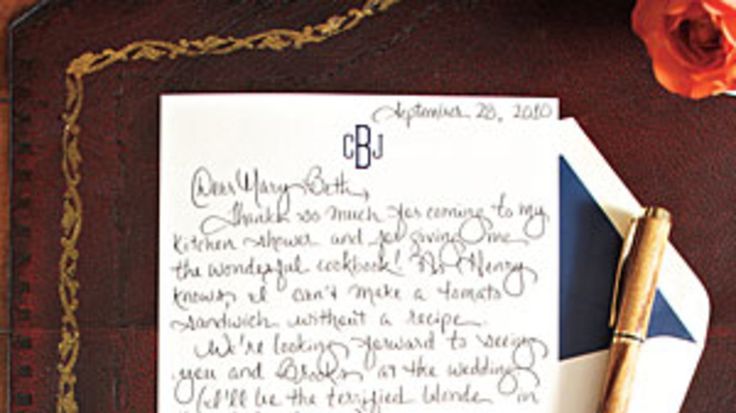 September 28, 2010
CBJ
Dear Mary Beth,
Thanks so much for coming to my
kitchen shower and for giving me
the wonderful cookbook! As Henry
knows, I can't make a tomato
sandwich without a recipe.
We're looking forward to seeing
you and Brooks at the wedding
(I'll be the terrified blonde in